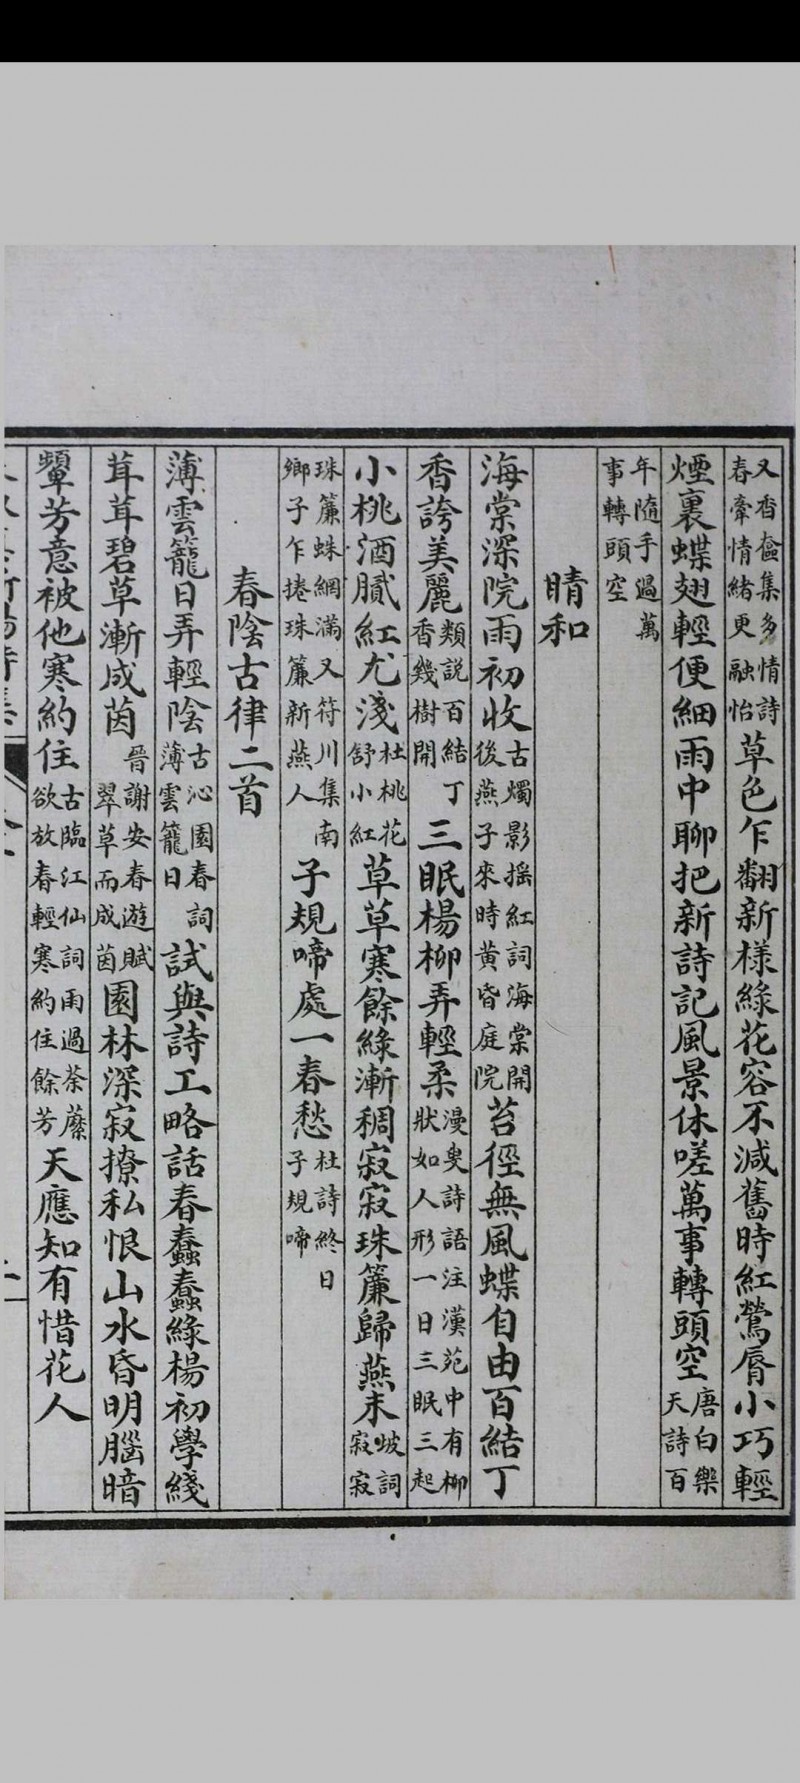 又香奩集多情詩
春牽情緒更融怡草色乍翻新樣綠花容不減舊時紅鶯脣小巧輕
煙裏蝶翅輕便細雨中聊把新詩記風景休嗟萬事轉頭空唐白樂
天詩百
年隨手過萬
事轉頭空
晴和
海棠深院雨初收古燭影搖紅詞海棠開
後燕子來時黃昏庭院苔徑無風蝶自由百結丁
香誇美麗類說百結丁
香幾樹開三眠楊柳弄輕柔漫叟詩語注漢苑中有柳
狀如人形一日三眠三起
小桃酒膩紅尤淺杜桃花
舒小紅草草寒餘綠漸稠寂寂珠簾歸燕未坡詞
寂寂
珠簾蛛網滿又符川集南
鄉子乍捲珠簾新燕人子規啼處一春愁杜詩終日
子規啼
春陰古律二首
薄雲籠日弄輕陰古沁園春詞
薄雲籠日試與詩工略話春蠢蠢綠楊初學綫
茸茸碧草漸成茵晉謝安春遊賦
翠草而成茵園林深寂撩私恨山水昏明腦暗
顰芳意被他寒約住古臨江仙詞雨過荼蘼
欲放春輕寒約住餘芳天應知有惜花人